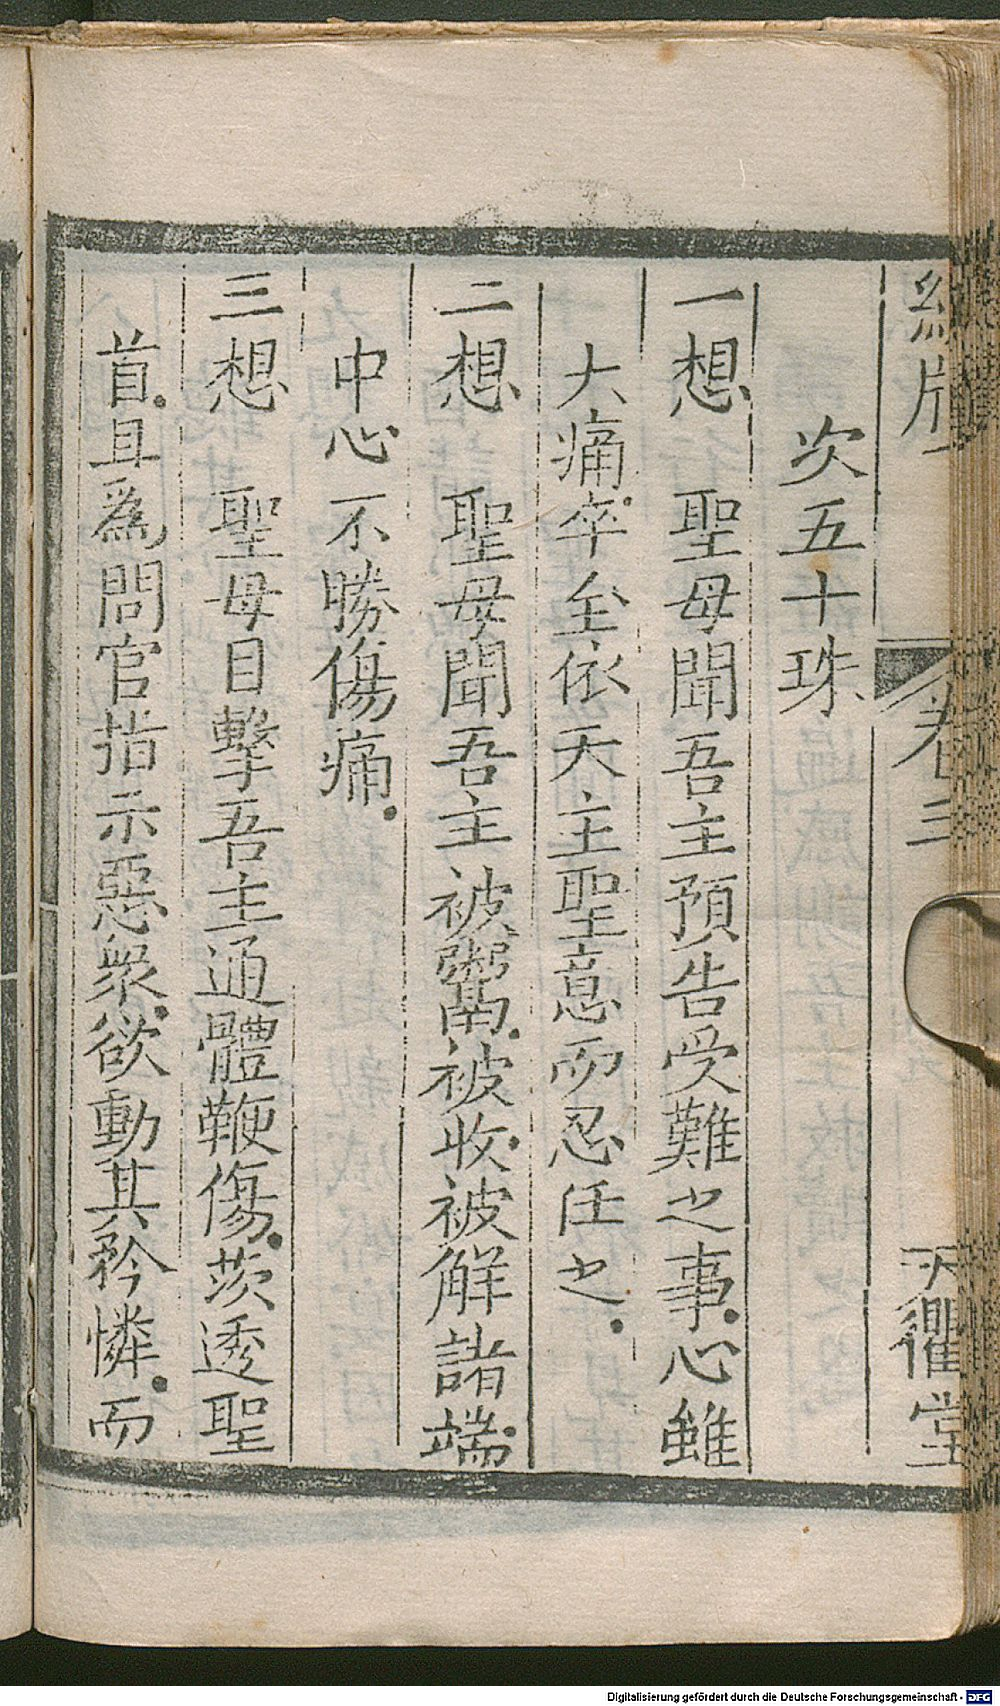 總牘 卷三 天衢堂
次五十珠
一想 聖母聞吾主預告受難之事心雖
大痛卒至依天主聖意而忍任之
二想 聖母聞吾主被鬻被收被解諸端
中心不勝傷痛
三想 聖母目擊吾主通體鞭傷茨透聖
首且爲問官指示惡衆欲動其矜憐而
Digitalisierung gefördert durch die Deutsche Forschungsgemeinschaft - DFG